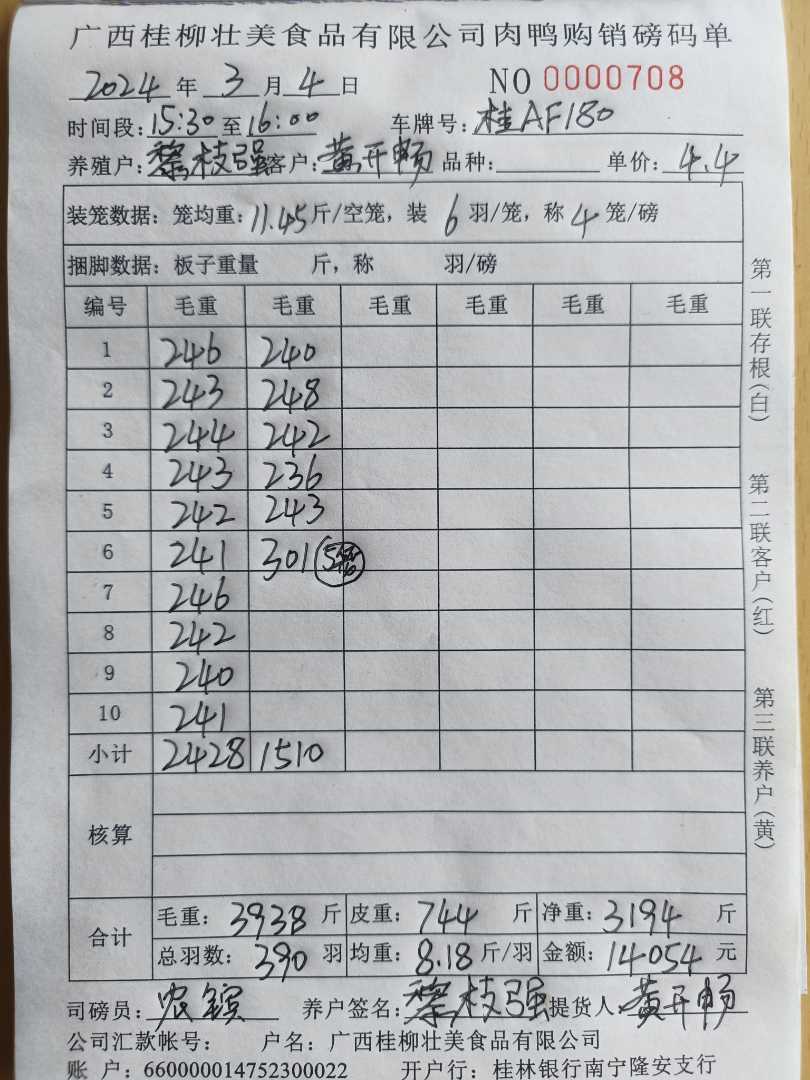 广西桂柳壮美食品有限公司肉鸭购销磅码单
2024 年 3 月 4 日 NO 0000708
时间段: 15:30 至 16:00 车牌号: 桂AF180
养殖户: 黎枝强 客户: 黄开畅 品种: 单价: 4.4
装笼数据: 笼均重: 11.45 斤/空笼, 装 6 羽/笼, 称 4 笼/磅
捆脚数据: 板子重量 斤, 称 羽/磅
编号 毛重 毛重 毛重 毛重 毛重 毛重
1 246 240
2 243 248
3 244 242
4 243 236
5 242 243
6 241 301
7 246
8 242
9 240
10 241
小计 2428 1510
核算
合计
毛重: 3938 斤 皮重: 744 斤 净重: 3194 斤
总羽数: 390 羽 均重: 8.18 斤/羽 金额: 14054 元
司磅员: 农 养户签名: 黎枝强 提货人: 黄开畅
公司汇款帐号: 户名: 广西桂柳壮美食品有限公司
账 户: 660000014752300022 开户行: 桂林银行南宁隆安支行
第一联存根(白)
第二联客户(红)
第三联养户(黄)